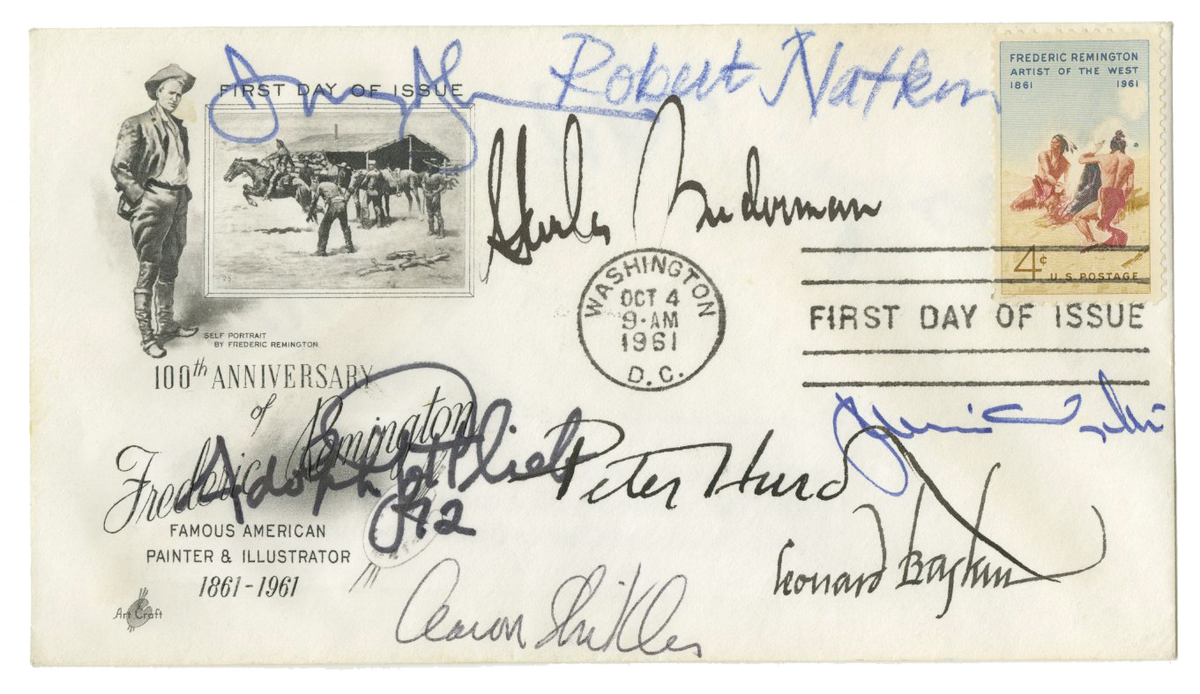 FIRST DAY OF ISSUE
Robert Natkin
FREDERIC REMINGTON
ARTIST OF THE WEST
1861 1961
4¢ U.S. POSTAGE
SELF PORTRAIT
BY FREDERIC REMINGTON
WASHINGTON
OCT 4
9-AM
1961
D.C.
FIRST DAY OF ISSUE
100th ANNIVERSARY
of
Frederic Remington
Adolph Gottlieb
Peter Hurd
Leonard Baskin
FAMOUS AMERICAN
PAINTER & ILLUSTRATOR
1861-1961
Art Craft
Aaron Shikler